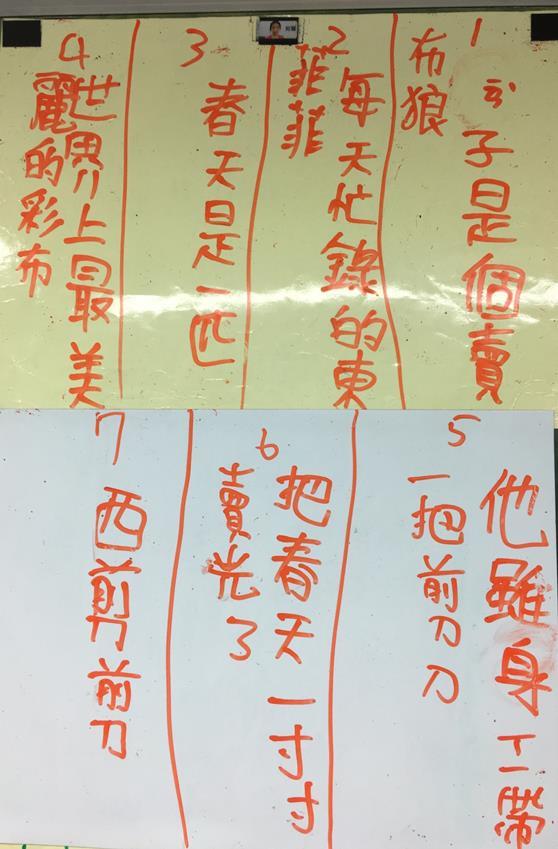 1
子是個賣
布狼
2
每天忙錄的東
菲菲
3
春天是一匹
4
世界上最美
麗的彩布
5
他雖身工帶
一把剪刀
6
把春天一寸寸
賣光了
7
西剪剪